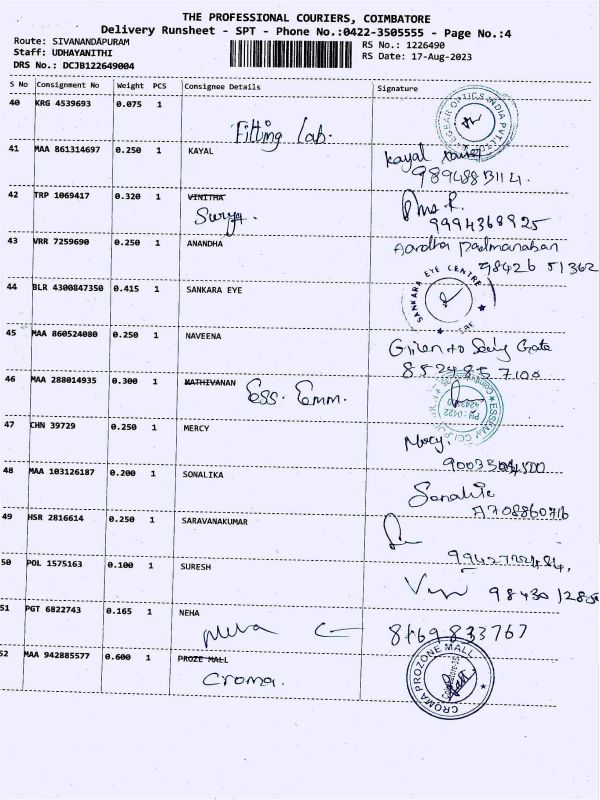 THE PROFESSIONAL COURIERS, COIMBATORE
Delivery Runsheet - SPT - Phone No.:0422-3505555 - Page No.:4
Route: SIVANANDAPURAM
Staff: UDHAYANITHI
DRS No.: DCJB122649004
RS No.: 1226490
RS Date: 17-Aug-2023
S No Consignment No Weight PCS Consignee Details Signature
40 KRG 4539693 0.075 1
Fitting Lab.
41 MAA 861314697 0.250 1 KAYAL
Kayal
42 TRP 1069417 0.320 1 VINITHA
Surya.
9994368925
43 VRR 7259690 0.250 1 ANANDHA
padmanaban
98426 51362
44 BLR 4300847350 0.415 1 SANKARA EYE
SANKARA EYE CENTRE
45 MAA 860524080 0.250 1 NAVEENA
85248 57100
46 MAA 288014935 0.300 1 MATHIVANAN
Ess. Emm.
47 CHN 39729 0.250 1 MERCY
Mercy.
48 MAA 103126187 0.200 1 SONALIKA
49 HSR 2816614 0.250 1 SARAVANAKUMAR
50 POL 1575163 0.100 1 SURESH
51 PGT 6822743 0.165 1 NEHA
8769833767
52 MAA 942885577 0.600 1 PROZE MALL
Croma.
CROMA PROZONE MALL